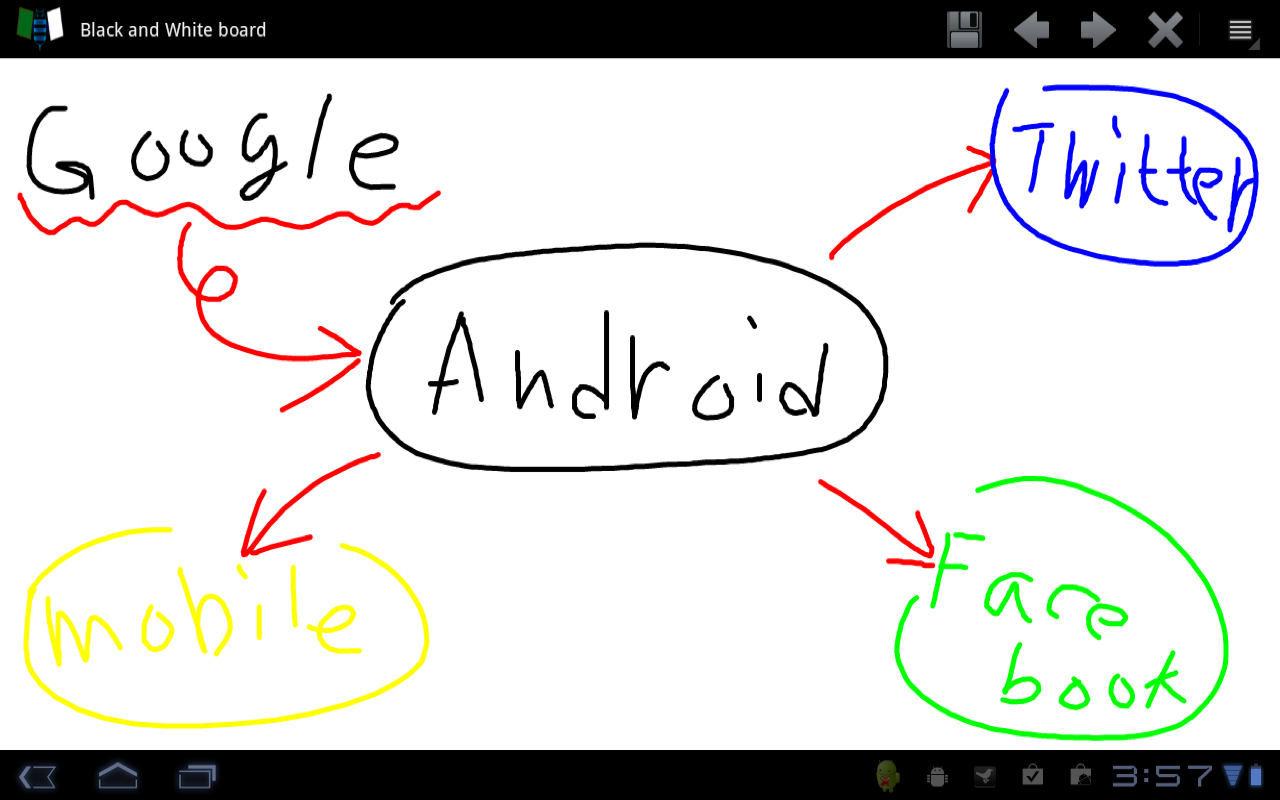 Black and White board
Google
Twitter
Android
mobile
Face
book
3:57